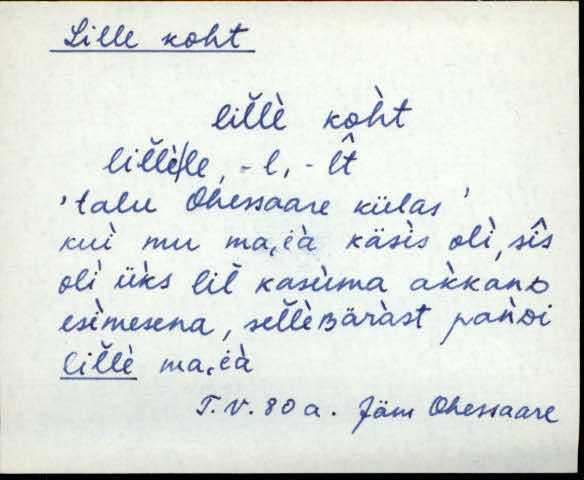 Lille koht
lil̆l̆è kòh̀t
lil̆l̆è/le, -l, -l̂t
'talu Ohessaare külas'
kuì mu ma,i̯à käsìs olì, sîs
olì ük̀s lil̆ kasùma ak̀kanᴅ
esìmesena, sel̆l̆èʙäràst pańᴅi
lil̆l̆è ma,i̯à
T.V. 80 a. Jäm Ohessaare